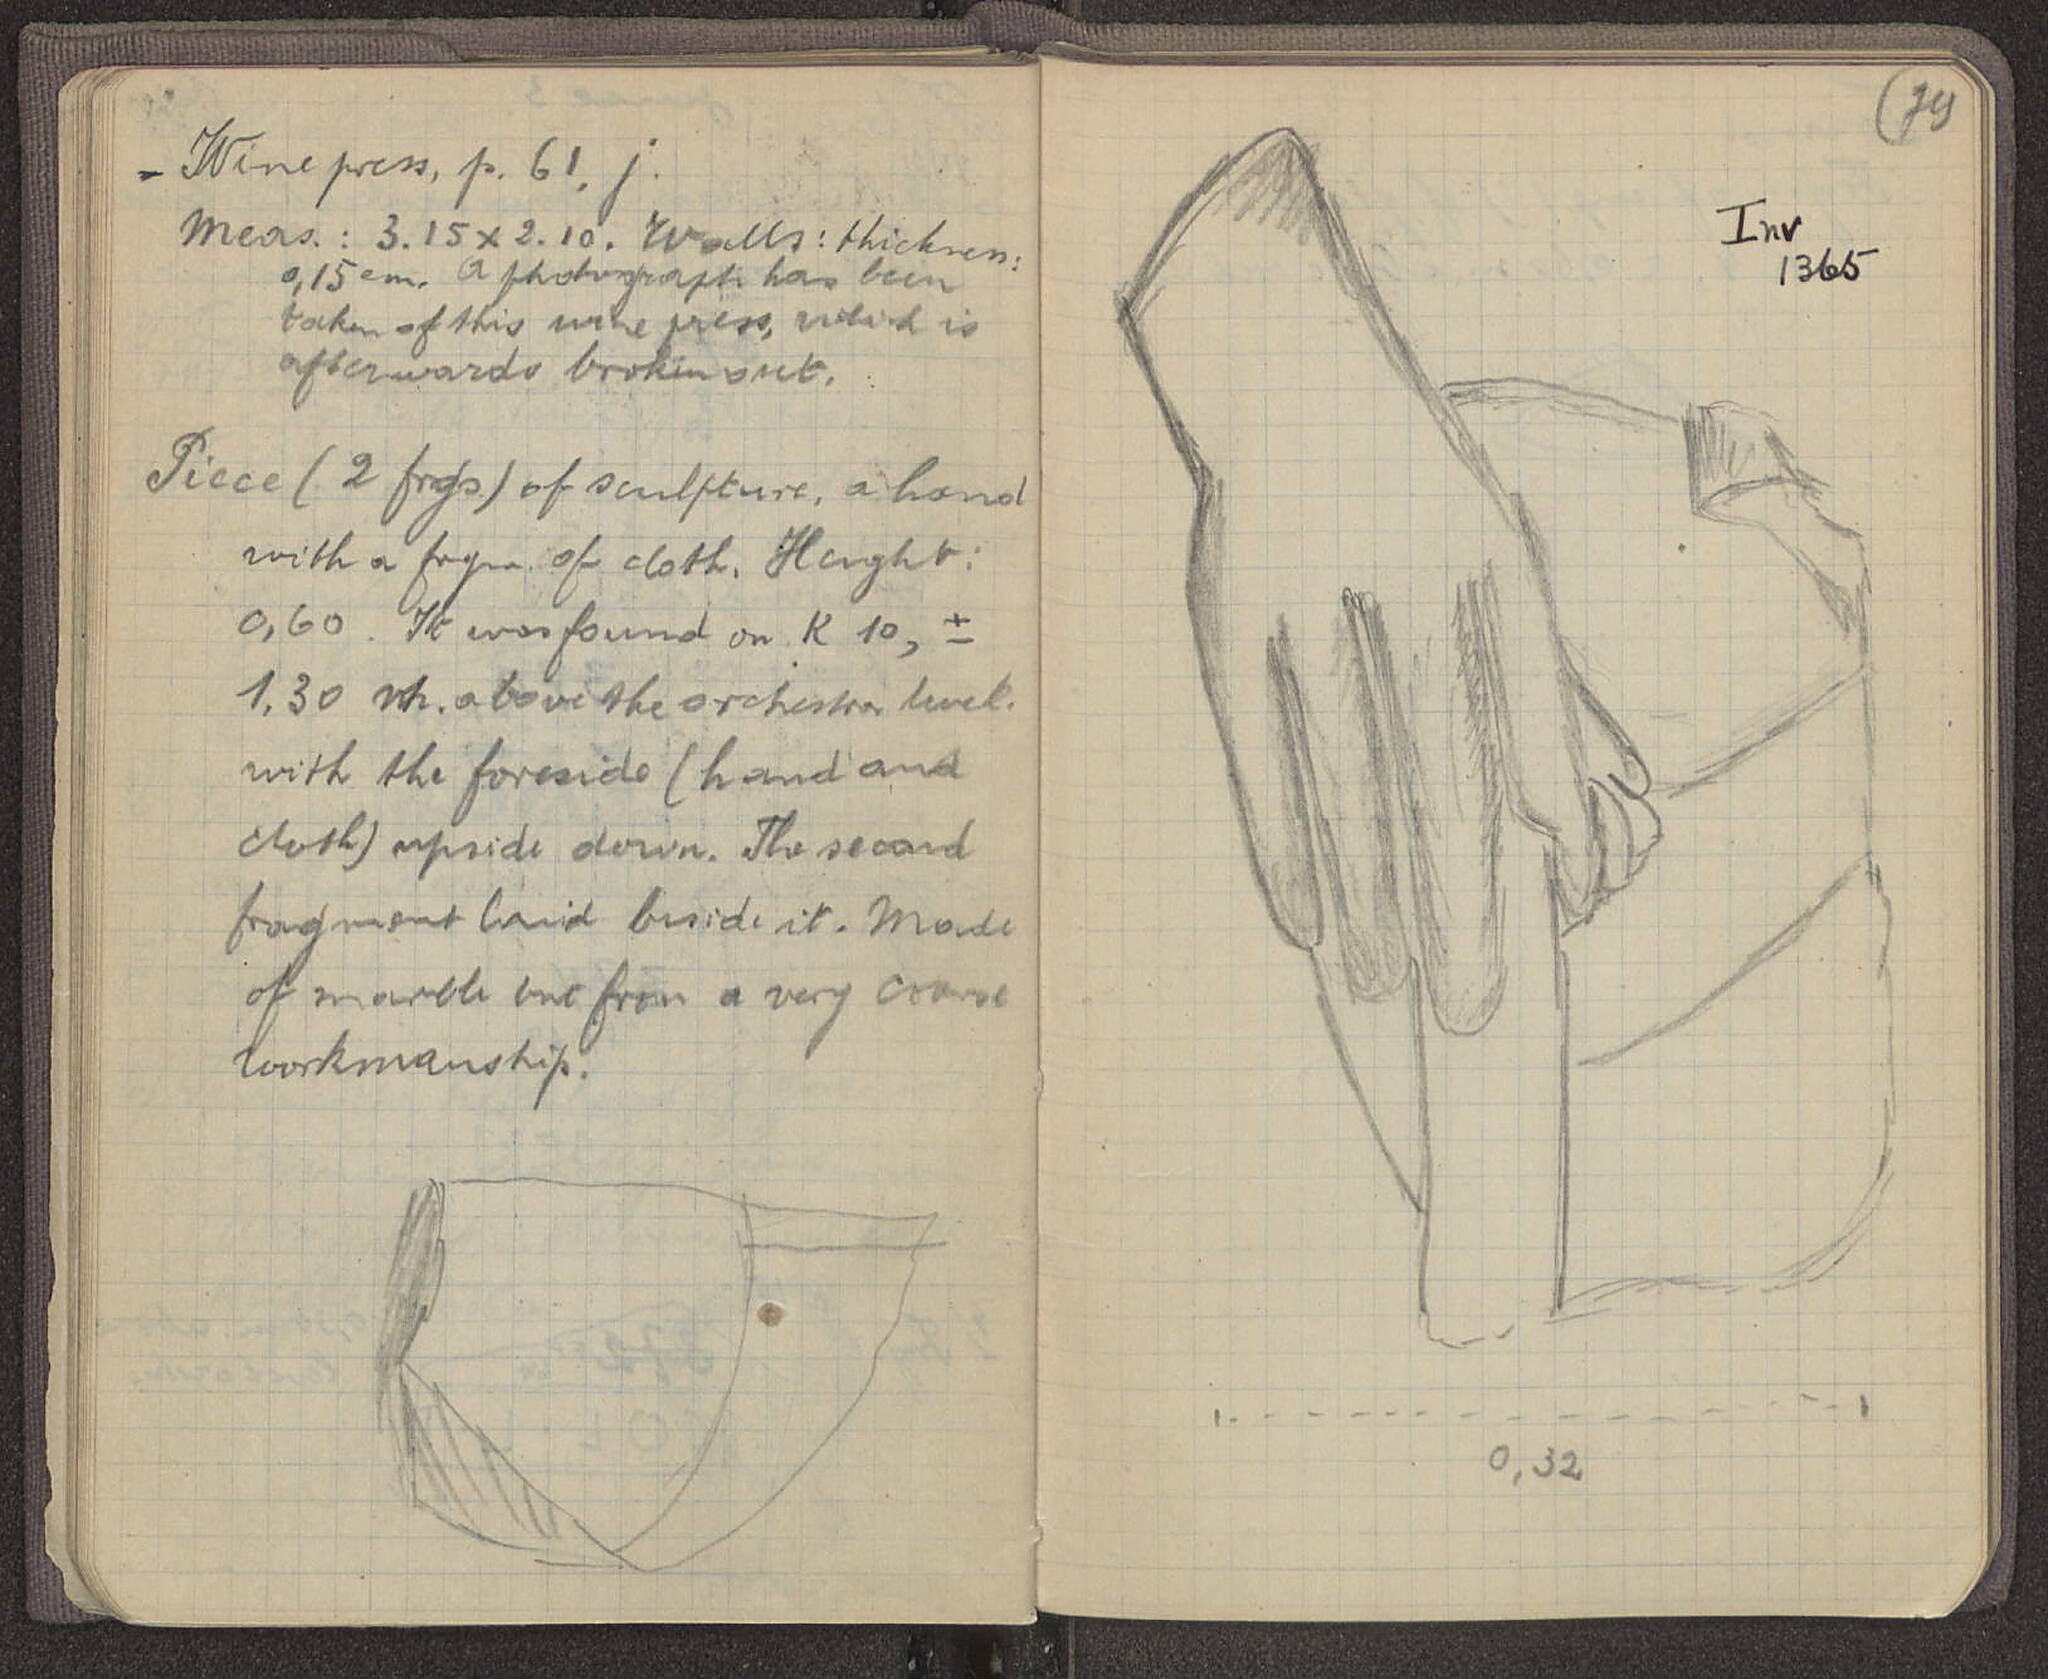 - Wine press, p. 61, j.
Meas.: 3.15 x 2.10. Walls: thickness:
0,15 cm. A photograph has been
taken of this wine press, which is
afterwards broken out.
Piece (2 frgs.) of sculpture, a hand
with a frgm. of cloth. Height:
0,60. It was found on K 10, ±
1,30 m. above the orchestra level.
with the foreside (hand and
cloth) upside down. The second
fragment laid beside it. Made
of marble but from a very coarse
workmanship.
(79
Inv
1365
0,32